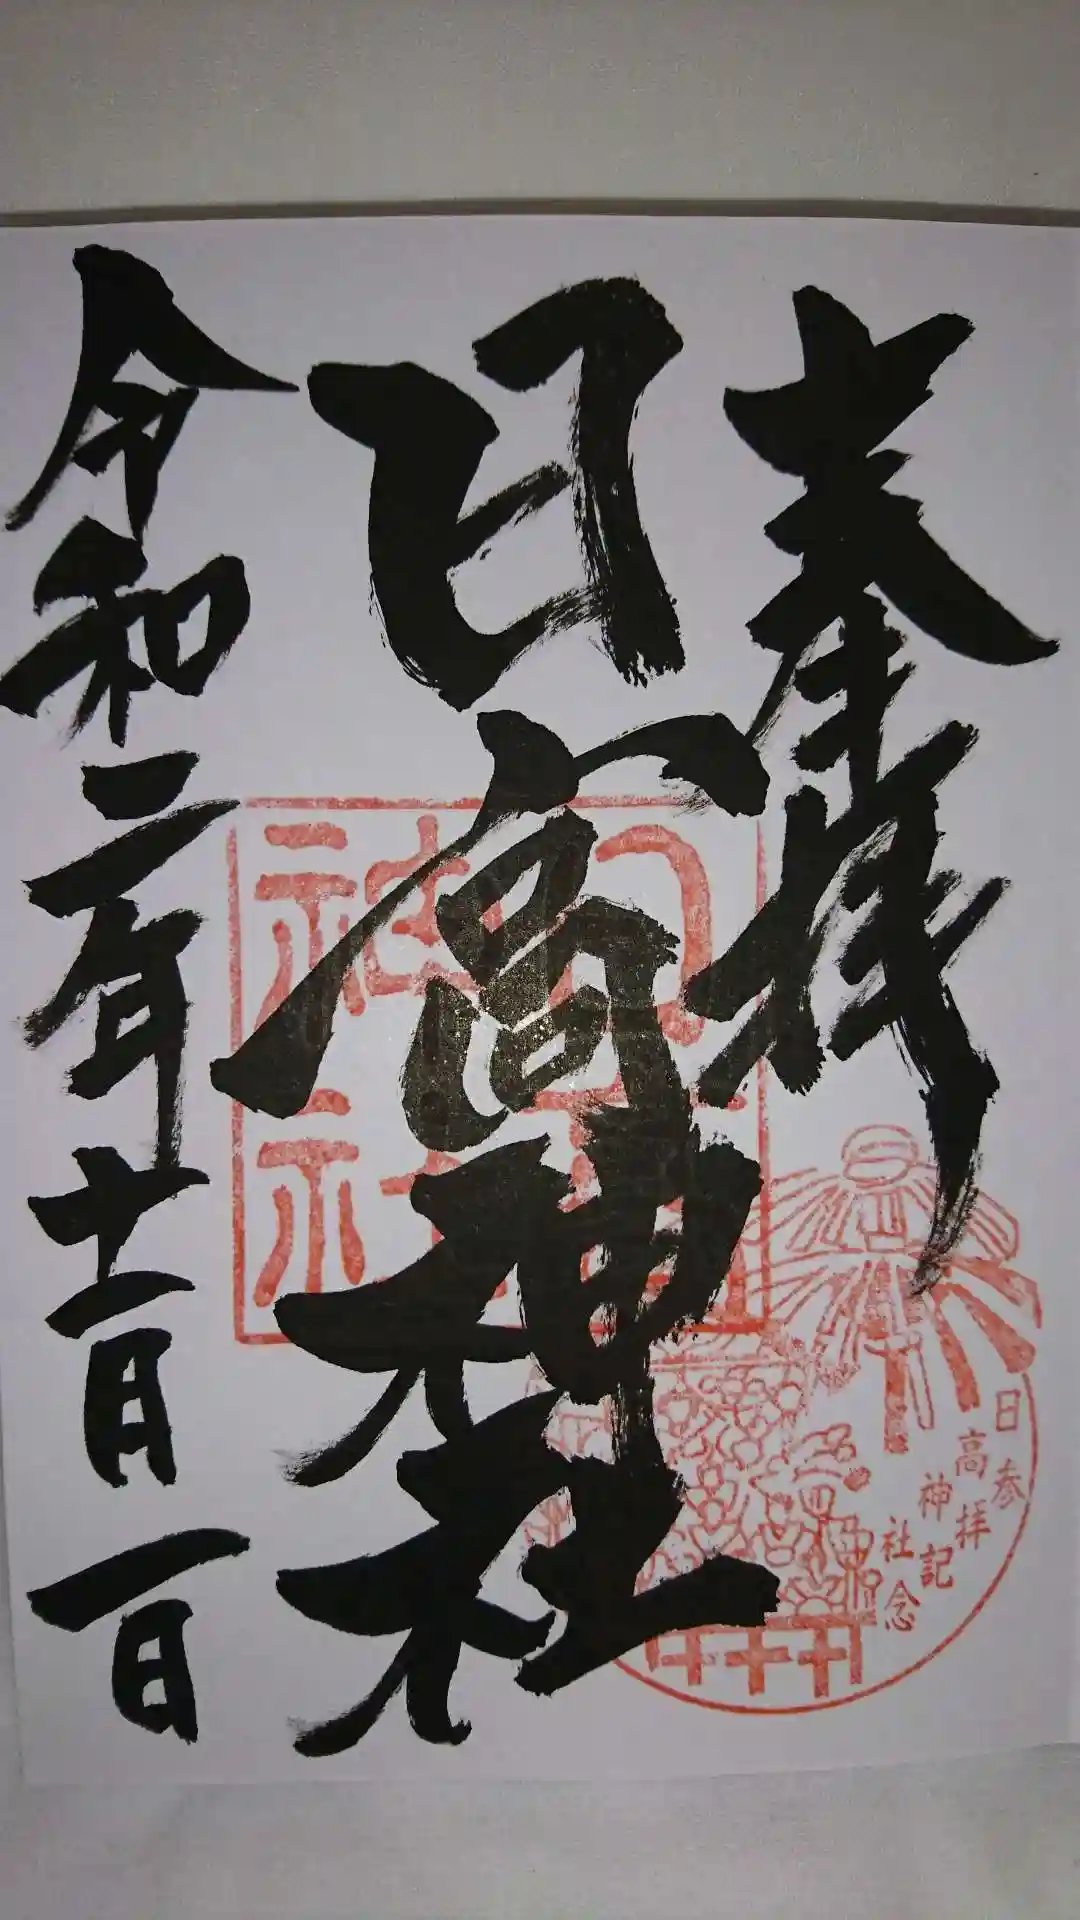 奉拝
日高神社
令和二年十一月一日
日高神社
日高神社
参拝記念